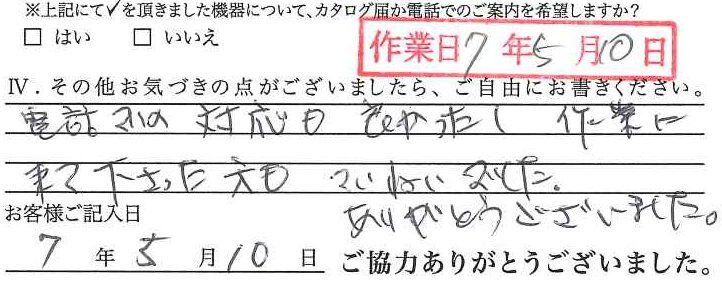 ※上記にて✓を頂きました機器について、カタログ届か電話でのご案内を希望しますか?
□ はい □ いいえ
作業日 7 年 5 月 10 日
Ⅳ. その他お気づきの点がございましたら、ご自由にお書きください。
電話での対応も良かったし 作業に
来て下さった方も ていねいでした。
ありがとうございました。
お客様ご記入日
7 年 5 月 10 日 ご協力ありがとうございました。